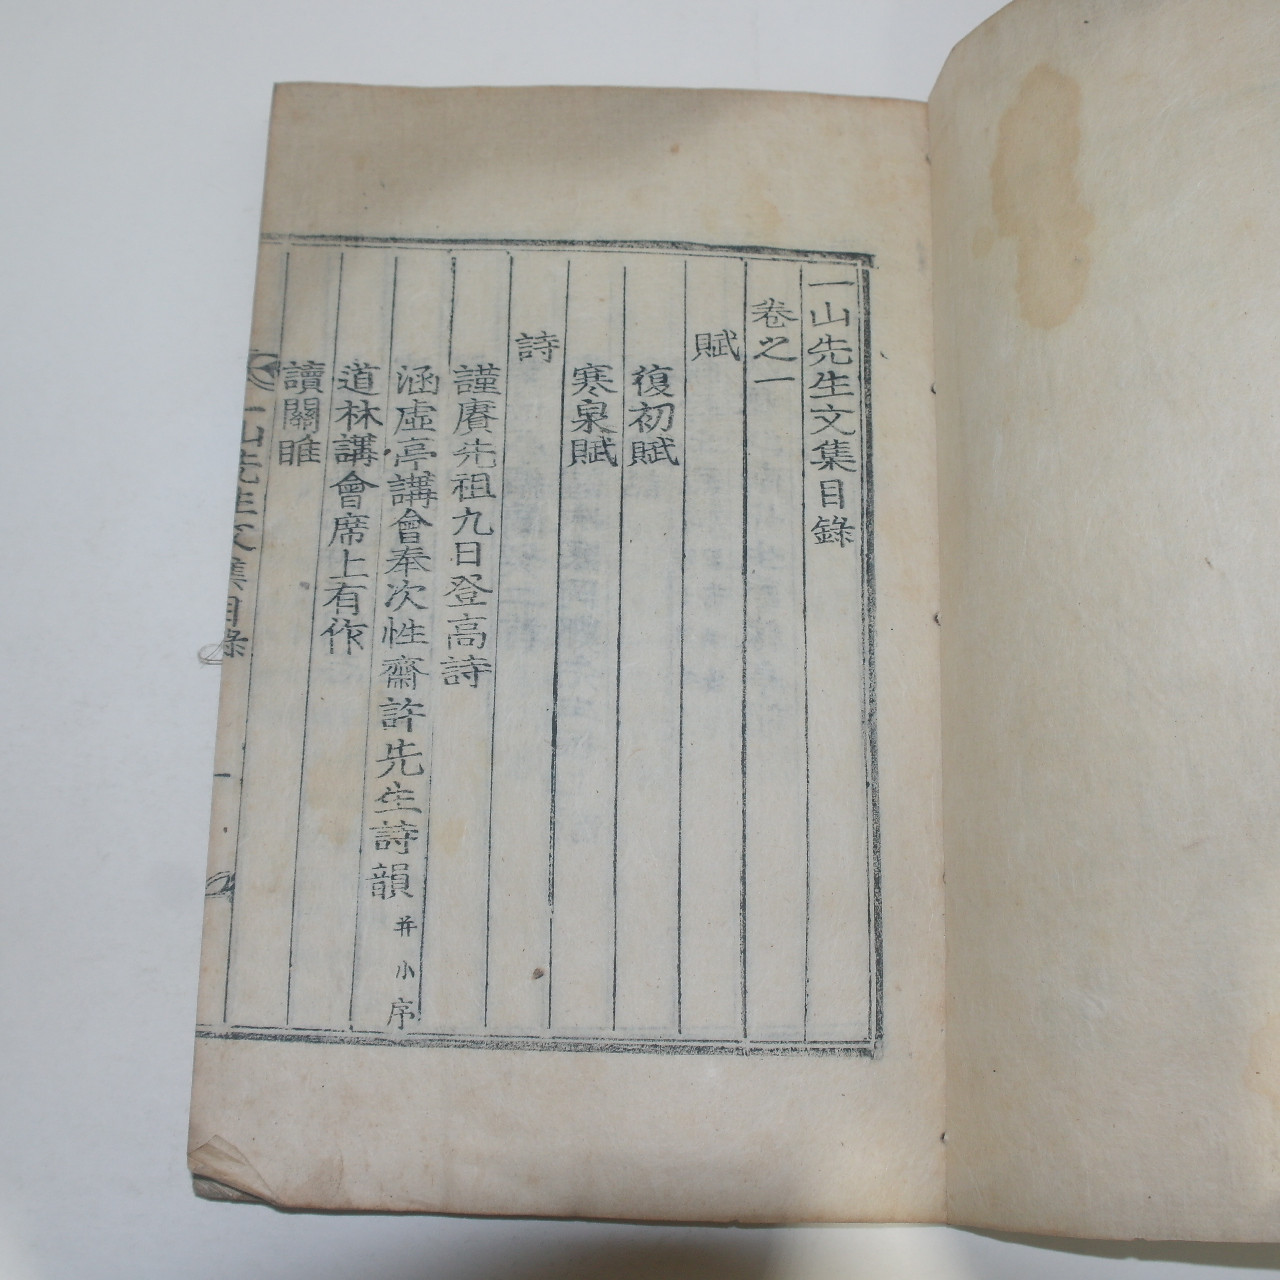 一山先生文集目錄
卷之一
賦
復初賦
寒泉賦
詩
謹賡先祖九日登高詩
涵虛亭講會奉次性齋許先生詩韻 幷小序
道林講會席上有作
讀關雎
一山先生文集目錄 一